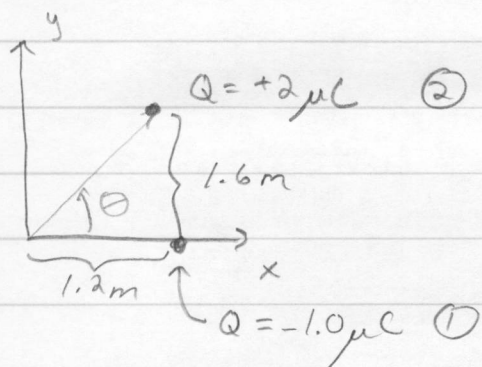 y
Q = +2 μC ②
1.6m
θ
1.2m
x
Q = -1.0 μC ①